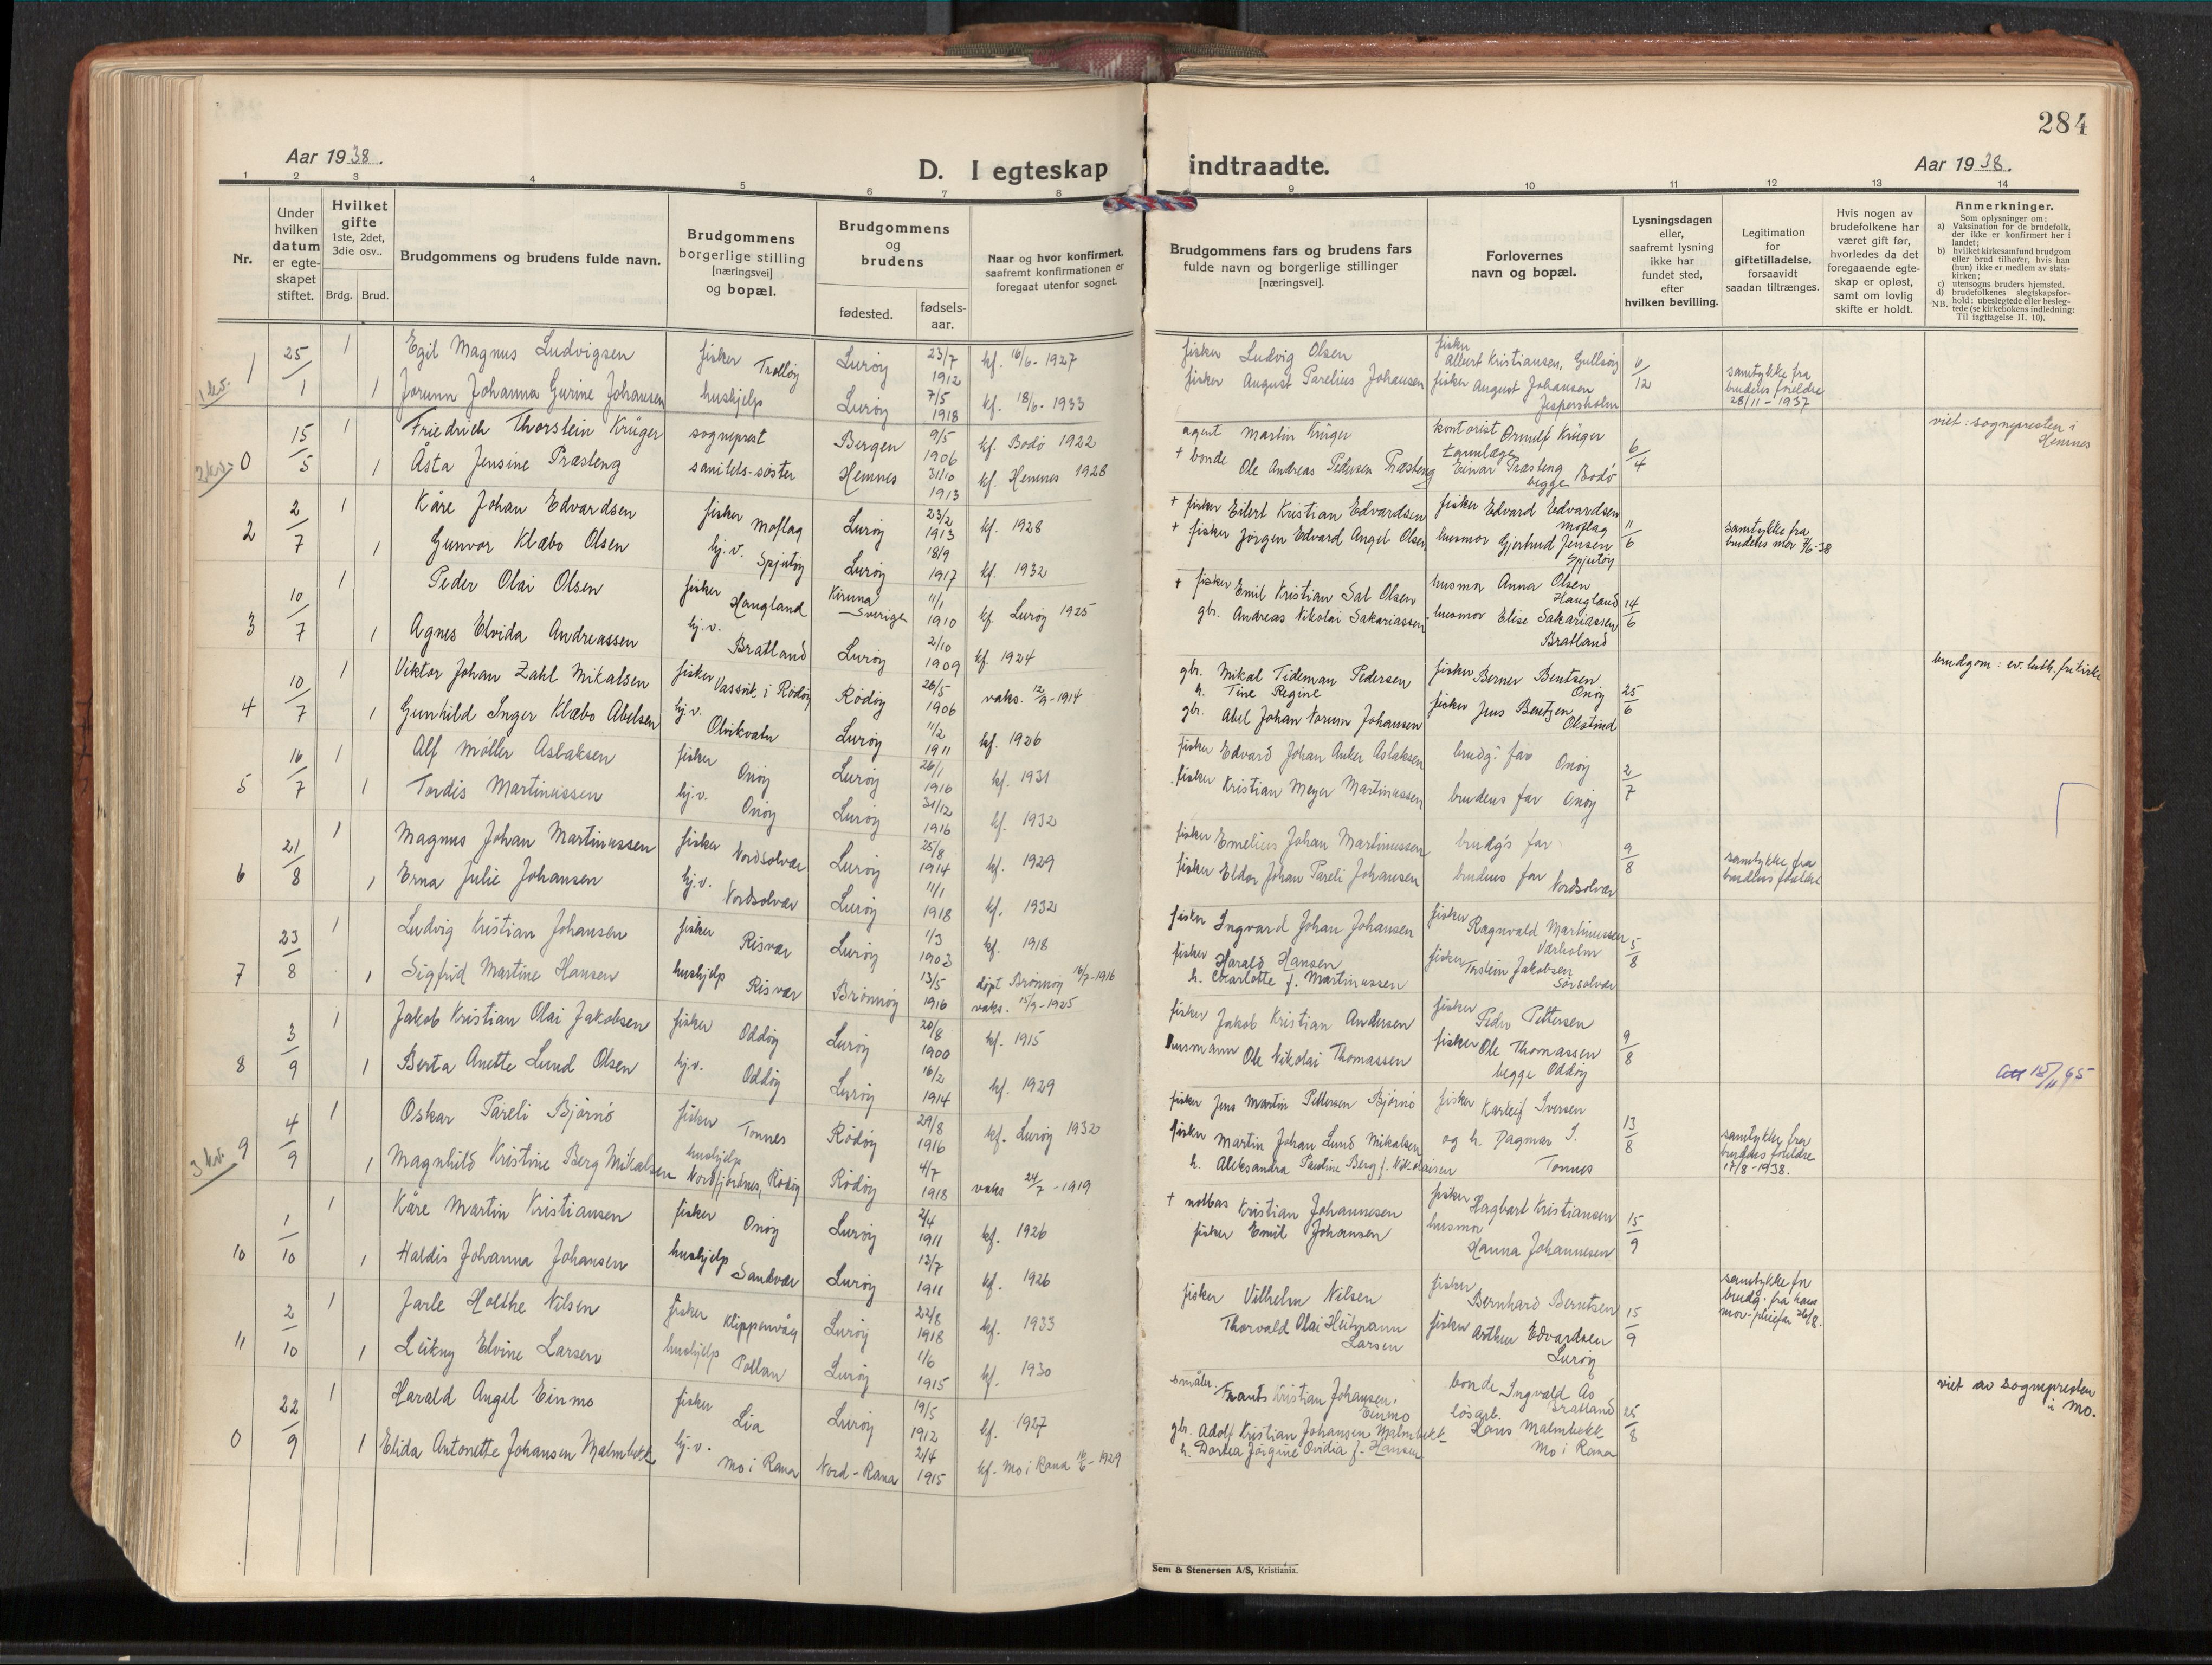 284
Aar 1938.
D. I egteskap indtraadte.
Aar 1938.
1 2 3 4 5 6 7 8 9 10 11 12 13 14
Nr.
Under hvilken datum er egteskapet stiftet.
Hvilket gifte 1ste, 2det, 3die osv..
Brdg. Brud.
Brudgommens og brudens fulde navn.
Brudgommens borgerlige stilling [næringsvei] og bopæl.
Brudgommens og brudens
fødested. fødsels-aar.
Naar og hvor konfirmert, saafremt konfirmationen er foregaat utenfor sognet.
Brudgommens fars og brudens fars fulde navn og borgerlige stillinger [næringsvei].
Forlovernes navn og bopæl.
Lysningsdagen eller, saafremt lysning ikke har fundet sted, efter hvilken bevilling.
Legitimation for giftetilladelse, forsaavidt saadan tiltrænges.
Hvis nogen av brudefolkene har været gift før, hvorledes da det foregaaende egteskap er opløst, samt om lovlig skifte er holdt.
Anmerkninger.
Som oplysninger om:
a) Vaksination for de brudefolk, der ikke er konfirmert her i landet;
b) hvilket kirkesamfund brudgom eller brud tilhører, hvis han (hun) ikke er medlem av statskirken;
c) utensogns bruders hjemsted.
d) brudefolkenes slegtskapsforhold: ubeslegtede eller beslegtede (se kirkebokens indledning:
NB. Til Iagttagelse II. 10).
1 kv.
1 25/1 1 Egil Magnus Ludvigsen fisker Trolløy Lurøy 23/7 1912 kf. 16/6-1927 fisker Ludvig Olsen fisker Albert Kristiansen, Gullsøy 6/12 samtykke fra brudens foreldre 28/11-1937
1 Jorunn Johanna Gurine Johansen hushjelp Lurøy 7/5 1918 kf. 18/6-1933 fisker August Parelius Johansen fisker August Johansen Jespersholm
2 kv.
0 15/5 1 Friedrich Thorstein Krüger sogneprest Bergen 9/5 1906 kf. Bodö 1922 agent Martin Krüger kontorist Ørnulf Krüger 6/4 viet: sognepresten i Hemnes
1 Åsta Jensine Præsteng sanitets-søster Hemnes 31/10 1913 kf. Hemnes 1928 + bonde Ole Andreas Pedersen Præsteng tannlæge Einar Præsteng begge Bodö
2 2/7 1 Kåre Johan Edvardsen fisker Moflag Lurøy 23/2 1913 kf. 1928 + fisker Eilert Kristian Edvardsen fisker Edvard Edvardsen Moflag 11/6 samtykke fra brudens mor 7/6-38
1 Gunvor Klæbo Olsen hj.v. Spjutøy Lurøy 18/9 1917 kf. 1932 + fisker Jørgen Edvard Angel Olsen husmor Gjertrud Jensen Spjutøy
3 10/7 1 Peder Olai Olsen fisker Haugland Kiruna Sverige 11/1 1910 kf. Lurøy 1925 + fisker Emil Kristian Sal Olsen husmor Anna Olsen Haugland 14/6
1 Agnes Elvida Andreassen hj.v. Bratland Lurøy 2/10 1909 kf. 1924 gbr. Andreas Nikolai Sakariassen husmor Elise Sakariassen Bratland
4 10/7 1 Viktor Johan Zahl Mikalsen fisker Vassvik i Rødøy Rødøy 26/5 1906 vaks. 12/9-1914 gbr. Mikal Tideman Pedersen h. Tine Regine fisker Berner Bentsen Onøy 25/6 brudgom: ev. luth. frikirke
1 Gunhild Inger Klæbo Abelsen hj.v. Olvikvatn Lurøy 11/2 1911 kf. 1926 gbr. Abel Johan Norum Johansen fisker Jens Bentzen Okstind
5 16/7 1 Alf Møller Aslaksen fisker Onøy Lurøy 26/1 1916 kf. 1931 fisker Edvard Johan Anker Aslaksen brudg. far Onøy 2/7
1 Tordis Martinussen hj.v. Onøy Lurøy 31/12 1916 kf. 1932 fisker Kristian Meyer Martinussen brudens far Onøy
6 21/8 1 Magnus Johan Martinussen fisker Nordsolvær Lurøy 25/8 1914 kf. 1929 fisker Emelius Johan Martinussen brudg's far 9/8 samtykke fra brudens foreldre
1 Erna Julie Johansen hj.v. Nordsolvær Lurøy 11/1 1918 kf. 1932 fisker Eldor Johan Pareli Johansen brudens far Nordsolvær
7 23/8 1 Ludvig Kristian Johansen fisker Risvær Lurøy 1/3 1903 kf. 1918 fisker Ingvard Johan Johansen fisker Ragnvald Martinussen Værholm 5/8
1 Sigfrid Martine Hansen hushjelp Risvær Brønnøy 13/5 1916 döpt Brønnøy 16/7-1916 vaks. 15/9-1925 fisker Harald Hansen h. Charlotte f. Martinussen fisker Torstein Jakobsen Sørsolvær
8 3/9 1 Jakob Kristian Olai Jakobsen fisker Oddøy Lurøy 20/8 1900 kf. 1915 fisker Jakob Kristian Andersen fisker Peder Pettersen 9/8
1 Berta Anette Lund Olsen hj.v. Oddøy Lurøy 16/2 1914 kf. 1929 husmann Ole Nikolai Thomassen fisker Ole Thomassen begge Oddøy Att 15/11 65
3 kv.
9 4/9 1 Oskar Pareli Bjørnö fisker Tonnes Rødøy 29/8 1916 kf. Lurøy 1932 fisker Jens Martin Pettersen Bjørnö fisker Karleif Iversen 13/8 samtykke fra brudens foreldre 17/8-1938.
1 Magnhild Kristine Berg Mikalsen hushjelp Nordfjordnes, Rødøy Rødøy 4/7 1918 vaks 24/7-1919 fisker Martin Johan Lund Mikalsen h. Aleksandra Pauline Berg f. Nikolaisen og h. Dagmar I. Tonnes
10 1/10 1 Kåre Martin Kristiansen fisker Onøy Lurøy 2/4 1911 kf. 1926 + notbas Kristian Johannesen fisker Hagbart Kristiansen 15/9
1 Haldis Johanna Johansen hushjelp Sandvær Lurøy 13/7 1911 kf. 1926 fisker Emil Johansen husmor Hanna Johannesen
11 2/10 1 Jarle Holthe Nilsen fisker Klippenvåg Lurøy 22/8 1918 kf. 1933 fisker Vilhelm Nilsen fisker Bernhard Berntsen 15/9 samtykke for brudg. fra hans mor 26/8.
1 Leikny Elvine Larsen hushjelp Pollan Lurøy 1/6 1915 kf. 1930 Thorvald Olai Heitmann Larsen fisker Arthur Edvardsen Lurøy
0 22/9 1 Harald Angel Einmo fisker Lia Lurøy 19/5 1912 kf. 1927 småbr. Frants Kristian Johansen Einmo bonde Ingvald As Bratland 25/8 viet av sognepresten i Mo.
1 Elida Antonette Johansen Malmbekk hj.v. Mo i Rana Nord-Rana 2/4 1915 kf. Mo i Rana 16/6-1929 gbr. Adolf Kristian Johansen Malmbekk h. Dortea Jørgine Ovidia f. Hansen løsarb. Hans Malmbekk Mo i Rana
Sem & Stenersen A/S, Kristiania.